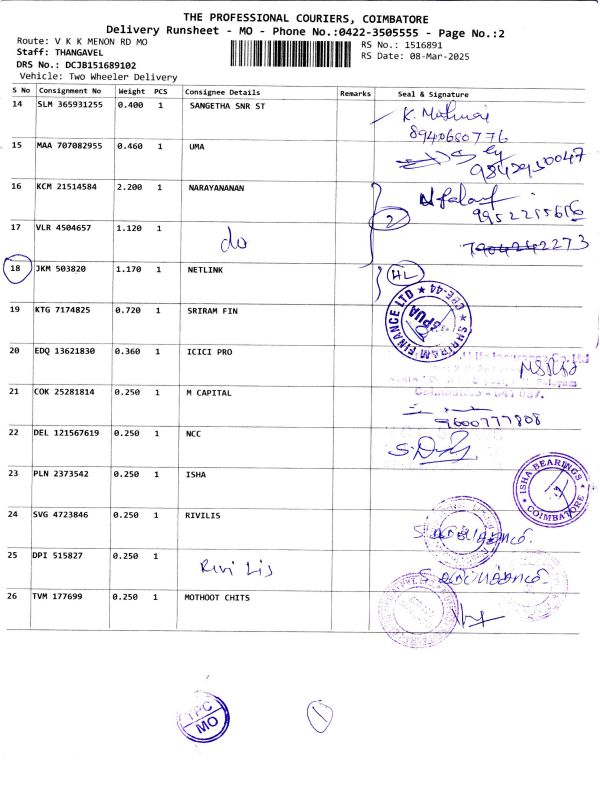 THE PROFESSIONAL COURIERS, COIMBATORE
Delivery Runsheet - MO - Phone No.:0422-3505555 - Page No.:2
Route: V K K MENON RD MO
RS No.: 1516891
Staff: THANGAVEL
RS Date: 08-Mar-2025
DRS No.: DCJB151689102
Vehicle: Two Wheeler Delivery
S No Consignment No Weight PCS Consignee Details Remarks Seal & Signature
14 SLM 365931255 0.400 1 SANGETHA SNR ST
8940650776
15 MAA 707082955 0.460 1 UMA
16 KCM 21514584 2.200 1 NARAYANANAN
2
17 VLR 4504657 1.120 1 do
7904242273
18 JKM 503820 1.170 1 NETLINK HL
19 KTG 7174825 0.720 1 SRIRAM FIN
SHRIRAM FINANCE LTD
20 EDQ 13621830 0.360 1 ICICI PRO
21 COK 25281814 0.250 1 M CAPITAL
9600777808
22 DEL 121567619 0.250 1 NCC
23 PLN 2373542 0.250 1 ISHA
ISHA BEARINGS COIMBATORE
24 SVG 4723846 0.250 1 RIVILIS
25 DPI 515827 0.250 1 Rivi Lis
26 TVM 177699 0.250 1 MOTHOOT CHITS
TPC MO
1